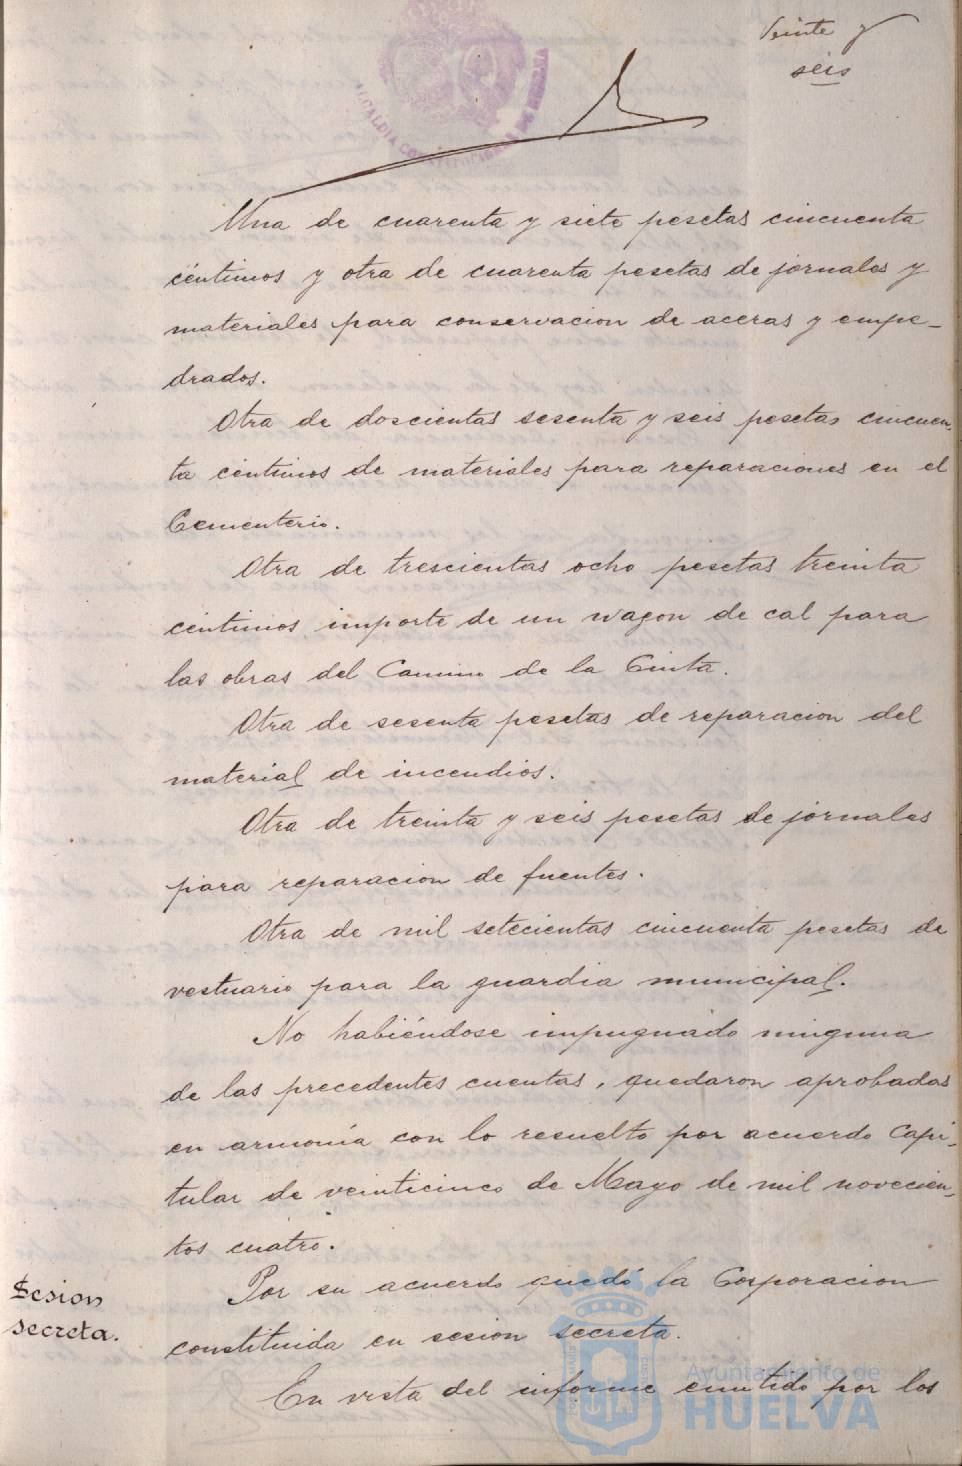 Veinte y
seis
ALCALDIA CONSTITUCIONAL DE HUELVA
Una de cuarenta y siete pesetas cincuenta
céntimos y otra de cuarenta pesetas de jornales y
materiales para conservacion de aceras y empe-
drados.
Otra de doscientas sesenta y seis pesetas cincuen-
ta céntimos de materiales para reparaciones en el
Cementerio.
Otra de trescientas ocho pesetas treinta
céntimos importe de un wagon de cal para
las obras del Camino de la Cinta.
Otra de sesenta pesetas de reparacion del
material de incendios.
Otra de treinta y seis pesetas de jornales
para reparacion de fuentes.
Otra de mil setecientas cincuenta pesetas de
vestuario para la guardia municipal.
No habiéndose impugnado ninguna
de las precedentes cuentas, quedaron aprobadas
en armonía con lo resuelto por acuerdo Capi-
tular de veinticinco de Mayo de mil novecien-
tos cuatro.
Sesion
secreta.
Por su acuerdo quedó la Corporacion
constituida en sesion secreta.
En vista del informe emitido por los
Ayuntamiento de
HUELVA